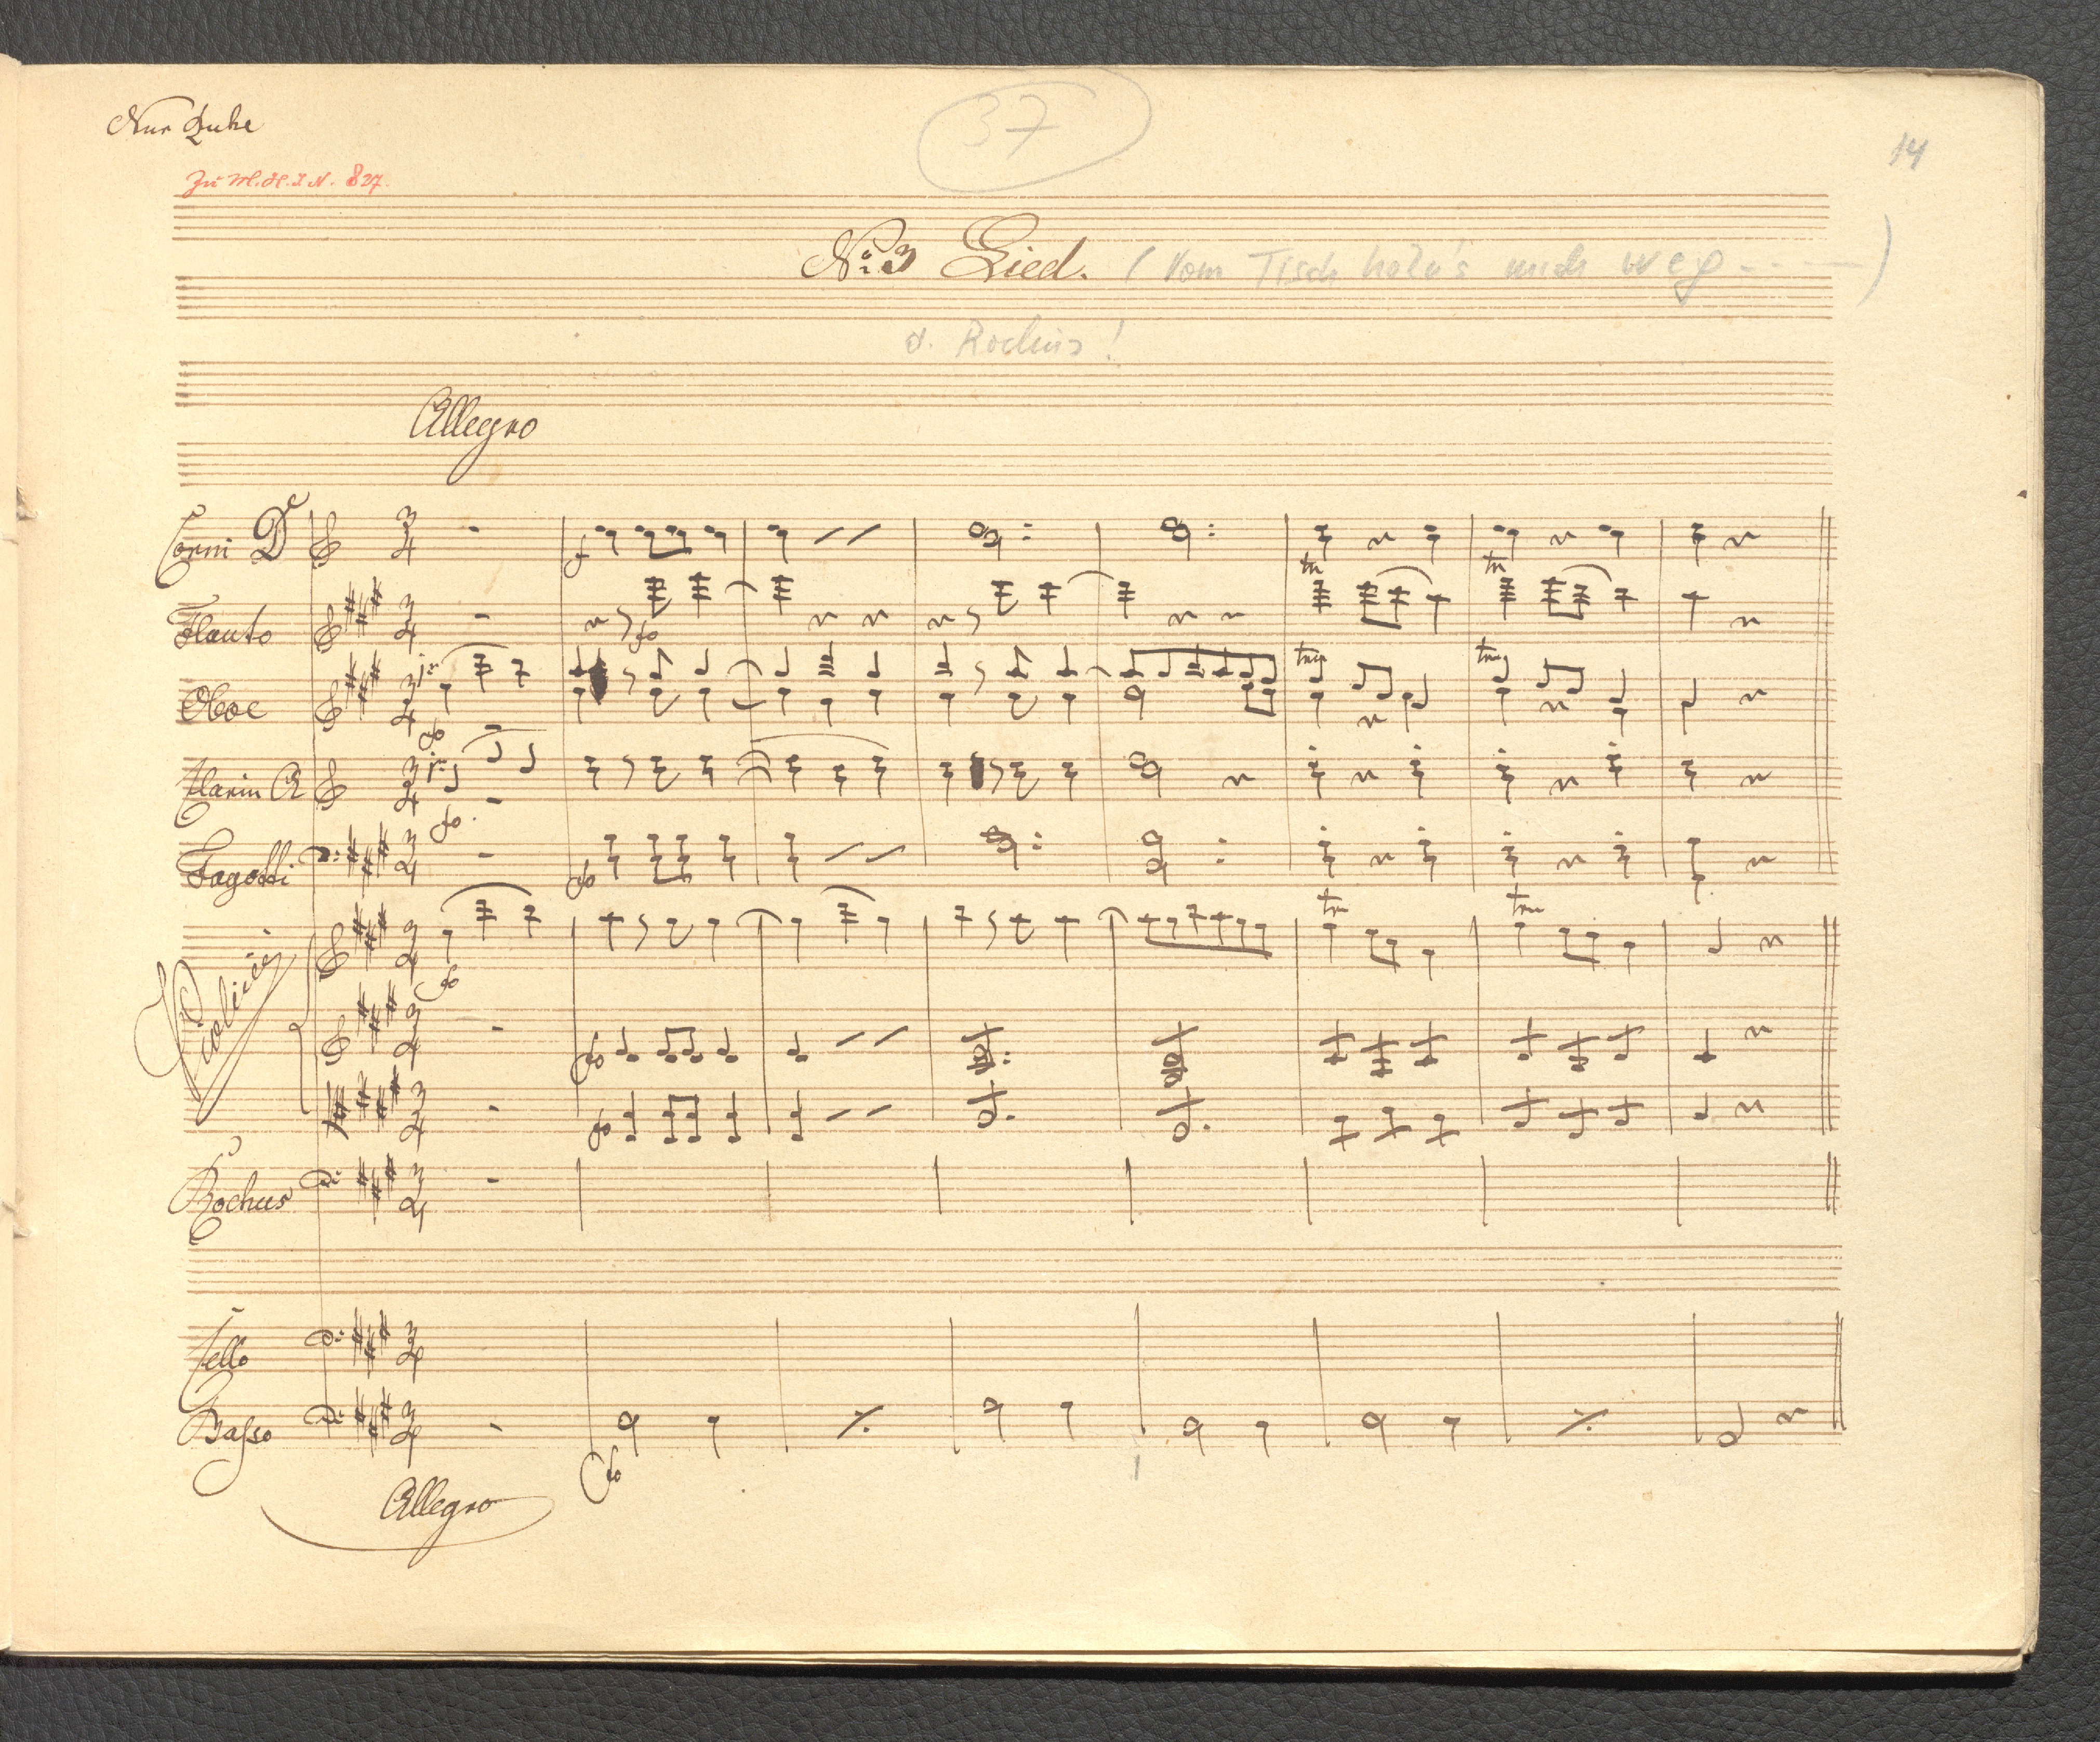 Nur Ruhe
37
14
Zu M.H.I.N. 827.
No: 3 Lied. (Vom Tisch holn's mich weg - - -)
d. Rochus!
Allegro
Corni D
Flauto
Oboe
Clarin A
Fagotti
Violini
Rochus
Cello
Baſso
Allegro